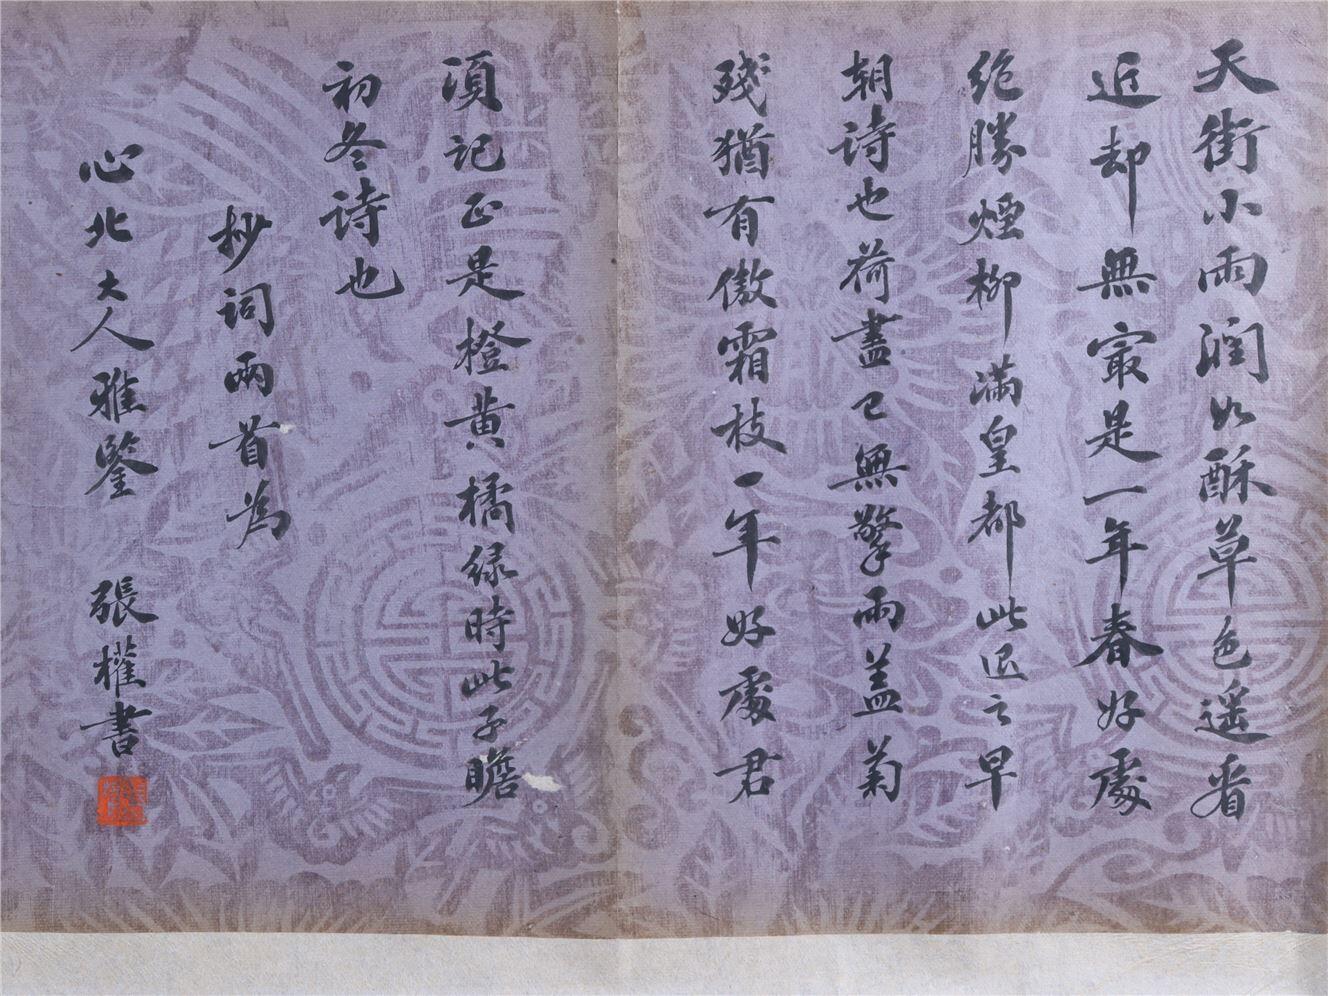 天街小雨潤如酥草色遥看
近却無最是一年春好處
絶勝煙柳滿皇都此退之早
朝詩也荷盡已無擎雨盖菊
殘猶有傲霜枝一年好處君
須記正是橙黄橘緑時此子瞻
初冬詩也
抄詞兩首為
心北大人雅鑒 張權書